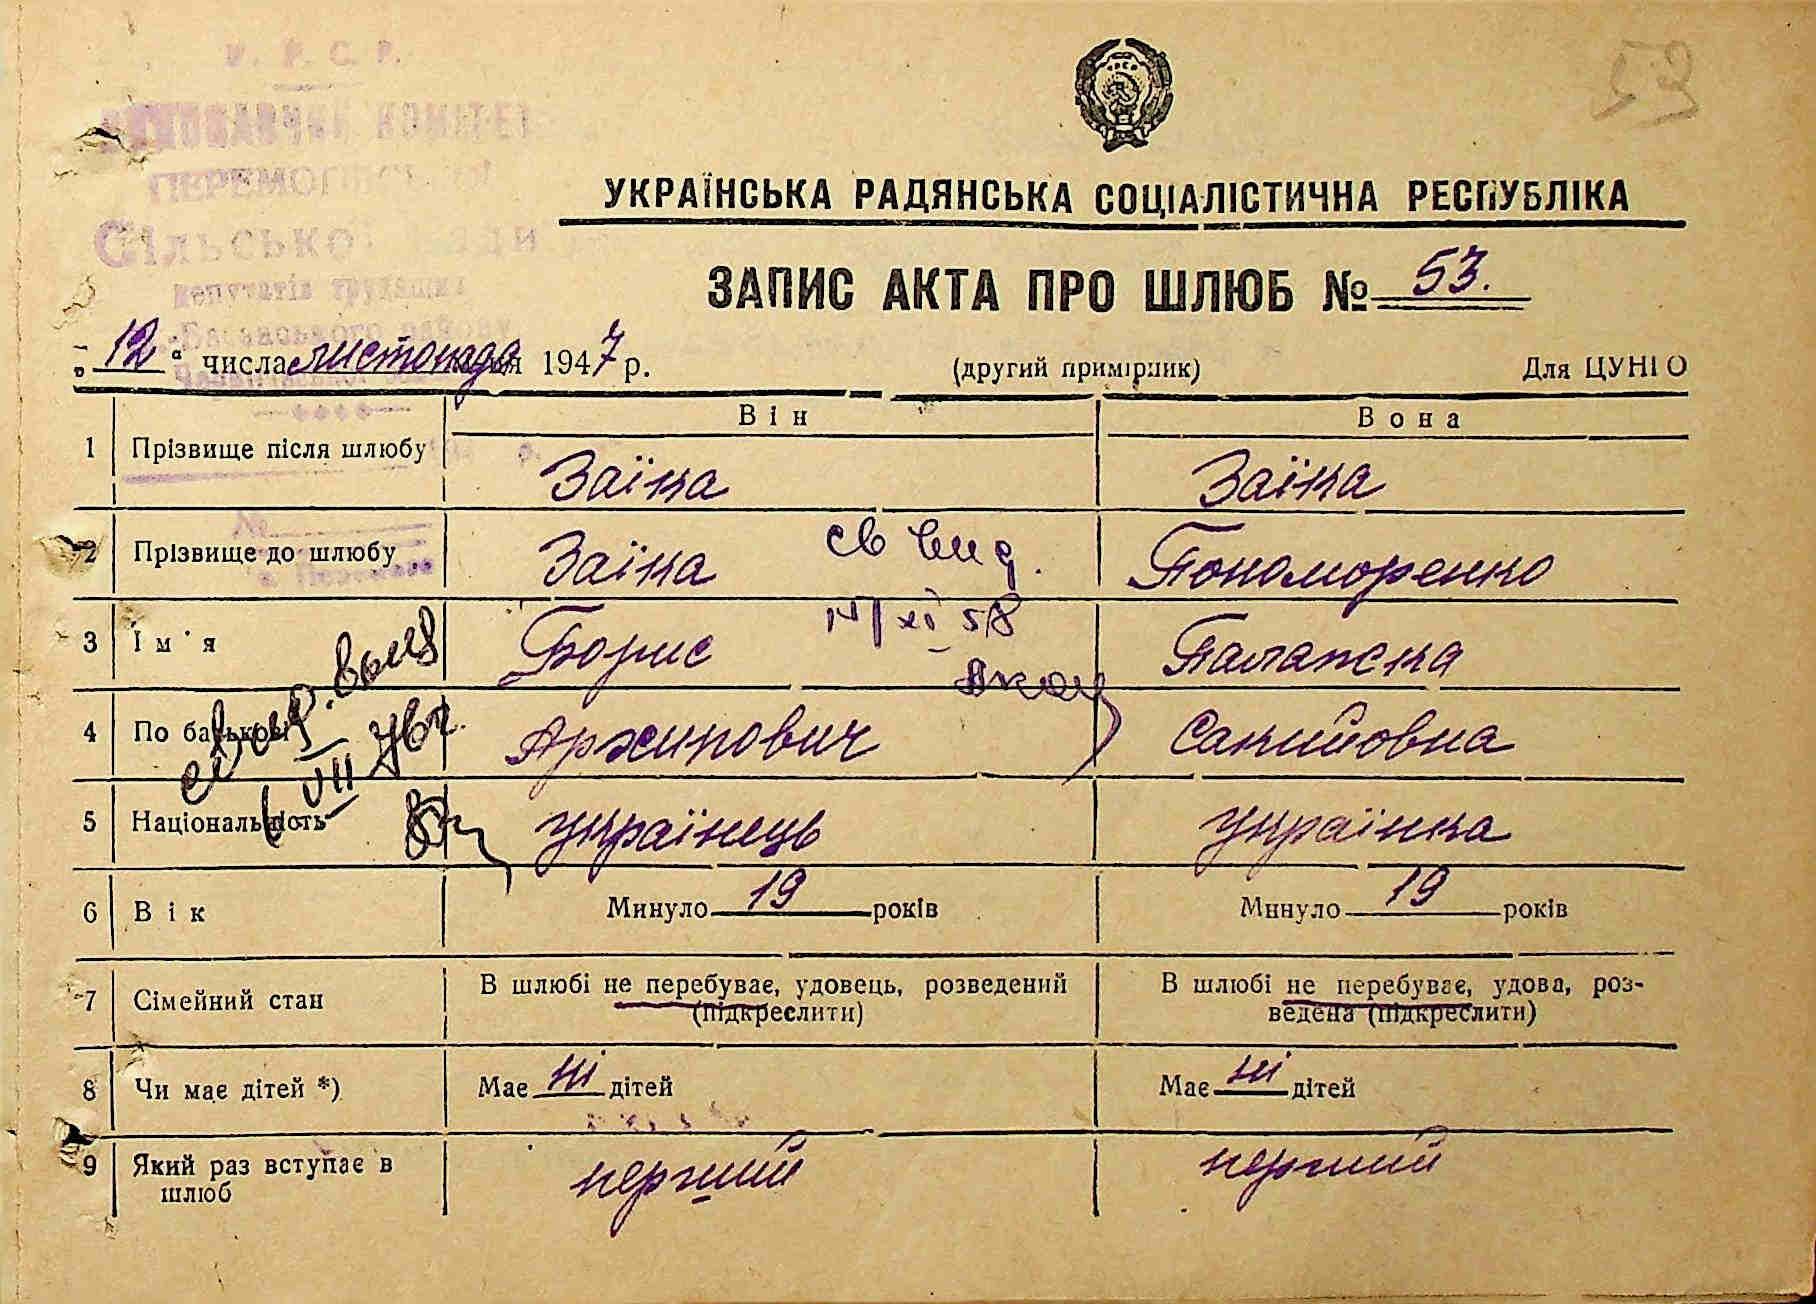 У. Р. С. Р.
ВИКОНАВЧИЙ КОМІТЕТ
ПЕРЕМОГІВСЬКОЇ
Сільської Ради
депутатів трудящих
Басанського району
53
УКРАЇНСЬКА РАДЯНСЬКА СОЦІАЛІСТИЧНА РЕСПУБЛІКА
ЗАПИС АКТА ПРО ШЛЮБ № 53.
„12“ числа листопада 1947 р. (другий примірник) Для ЦУНГО
Він Вона
1 Прізвище після шлюбу Заїка Заїка
№
2 Прізвище до шлюбу Заїка св вид. Пономоренко
3 Ім'я Борис 14/XI 58 Палажка
4 По батькові Архипович Санийовна
VII 76г.
5 Національність українець українка
6 Вік Минуло 19 років Минуло 19 років
7 Сімейний стан В шлюбі не перебуває, удовець, розведений (підкреслити) В шлюбі не перебуває, удова, роз-
ведена (підкреслити)
8 Чи має дітей *) Має ні дітей Має ні дітей
9 Який раз вступає в перший перший
шлюб